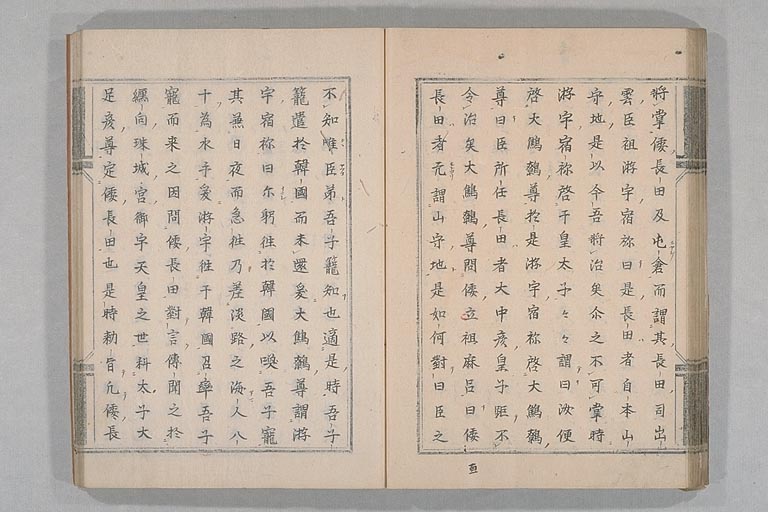 將掌倭長田及屯倉而謂其長田司出
雲臣祖淤宇宿祢曰是長田者自本山
守地是以今吾將治矣尒之不可掌時
淤宇宿祢啓于皇太子々々謂曰汝便
啓大鷦鷯尊於是淤宇宿祢啓大鷦鷯
尊曰臣所任長田者大中彦皇子距不
令治矣大鷦鷯尊問倭立祖麻呂曰倭
長田者元謂山守地是如何對曰臣之
不知唯臣弟吾子籠知也適是時吾子
籠遣於韓國而未還爰大鷦鷯尊謂淤
宇宿祢曰尓躬往於韓國以喚吾子寵
其兼日夜而急往乃差淡路之海人八
十為水手爰淤宇往于韓國召率吾子
寵而来之因問倭長田對言傳聞之於
纒向珠城宮御宇天皇之世科太子大
足彦尊定倭長田也是時勅旨凡倭長